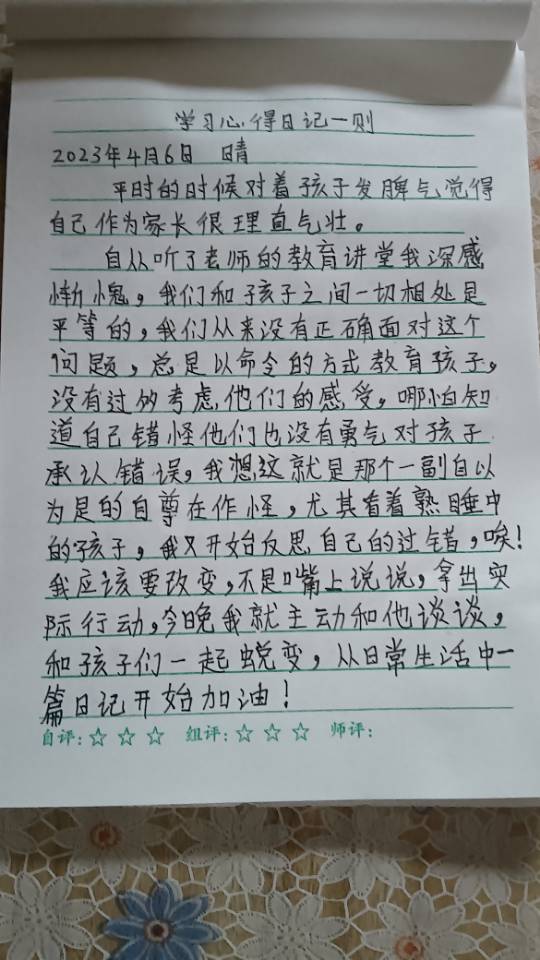 学习心得日记一则
2023年4月6日 晴
平时的时候对着孩子发脾气觉得
自己作为家长很理直气壮。
自从听了老师的教育讲堂我深感
惭愧，我们和孩子之间一切相处是
平等的，我们从来没有正确面对这个
问题，总是以命令的方式教育孩子，
没有过的考虑他们的感受，哪怕知
道自己错怪他们也没有勇气对孩子
承认错误，我想这就是那个一副自以
为是的自尊在作怪，尤其看着熟睡中
的孩子，我又开始反思自己的过错，唉！
我应该要改变，不是嘴上说说，拿出实
际行动，今晚我就主动和他谈谈，
和孩子们一起蜕变，从日常生活中一
篇日记开始加油！
自评：☆ ☆ ☆ 组评：☆ ☆ ☆ 师评：